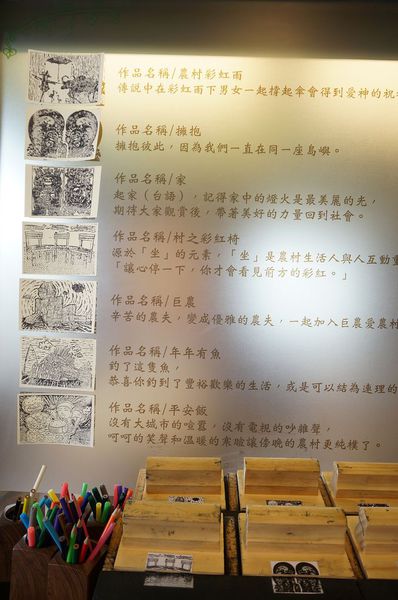 作品名稱/農村彩虹雨
傳說中在彩虹雨下男女一起撐起傘會得到愛神的祝
作品名稱/擁抱
擁抱彼此，因為我們一直在同一座島嶼。
作品名稱/家
起家（台語），記得家中的燈火是最美麗的光，
期待大家觀賞後，帶著美好的力量回到社會。
作品名稱/村之彩虹椅
源於「坐」的元素，「坐」是農村生活人與人互動重
「讓心停一下，你才會看見前方的彩虹。」
作品名稱/巨農
辛苦的農夫，變成優雅的農夫，一起加入巨農愛農村
作品名稱/年年有魚
釣了這隻魚，
恭喜你釣到了豐裕歡樂的生活，或是可以結為連理的
作品名稱/平安飯
沒有大城市的喧囂，沒有電視的吵雜聲，
呵呵的笑聲和溫暖的寒暄讓傍晚的農村更純樸了。